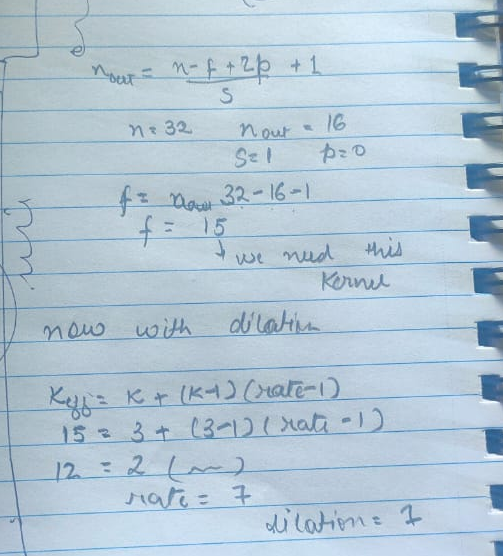 n_out = n-f+2p/s +1
n=32 n_out = 16
s=1 p=0
f= 32-16-1
f= 15
↓ we need this
Kernel
now with dilation
K_eff= K + (K-1)(rate-1)
15 = 3 + (3-1)(rate-1)
12 = 2 (~)
rate = 7
dilation= 7